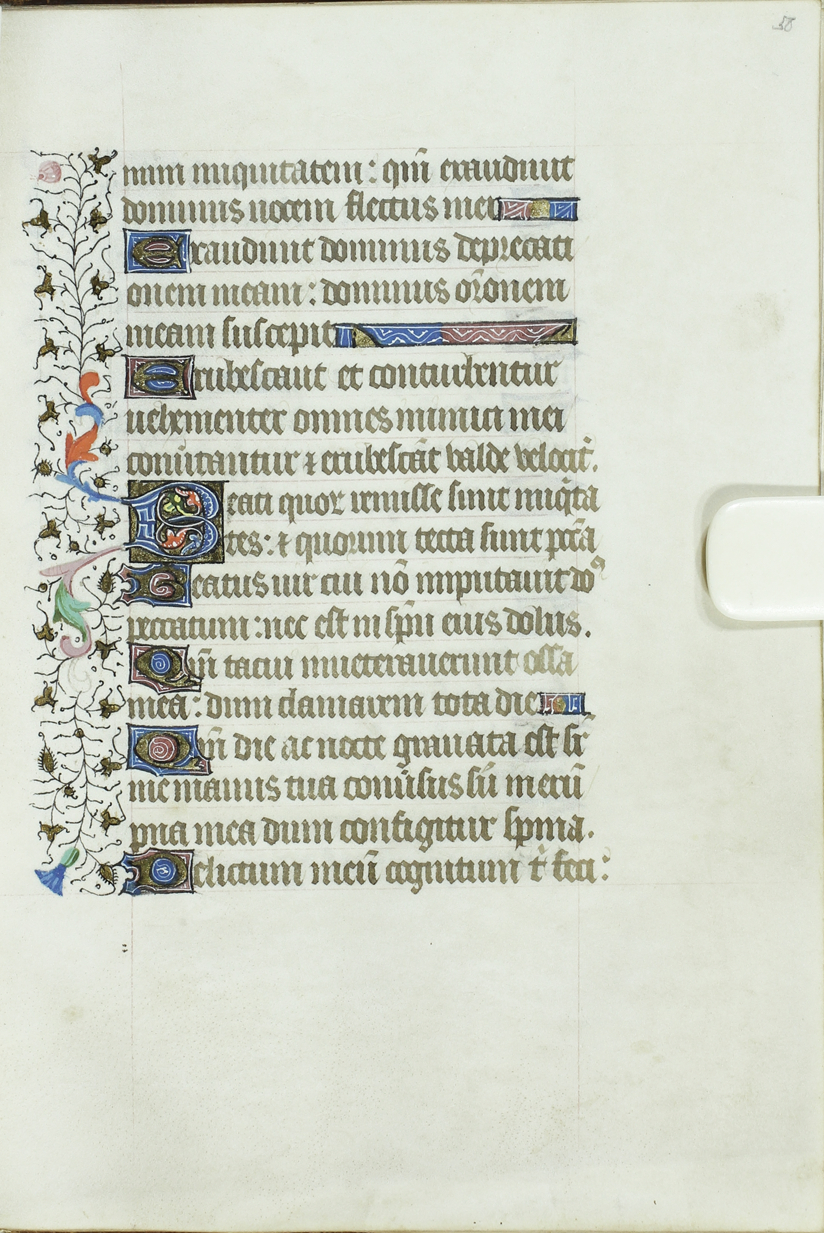 58
num iniquitatem : qm̄ exaudiuit
dominus uocem fletus mei
Exaudiuit dominus deprecati
onem meam : dominus or̄onem
meam suscepit
Erubescant et conturbentur
uehementer omnes inimici mei
conūtantur ⁊ erubescāt valde velocit̄.
Beati quoꝝ remisse sunt iniq̄ta
tes : ⁊ quorum tecta sunt pcc̄a
Beatus uir cui nō imputauit dn̄s
peccatum : nec est in sp̄u eius dolus.
Qm̄ tacui inueterauerunt ossa
mea : dum clamarem tota die
Qm̄ die ac nocte grauata est sr̄
me manus tua conūsus sū in erū
pna mea dum configitur spina.
Delictum meū cognitum t̄ feci :